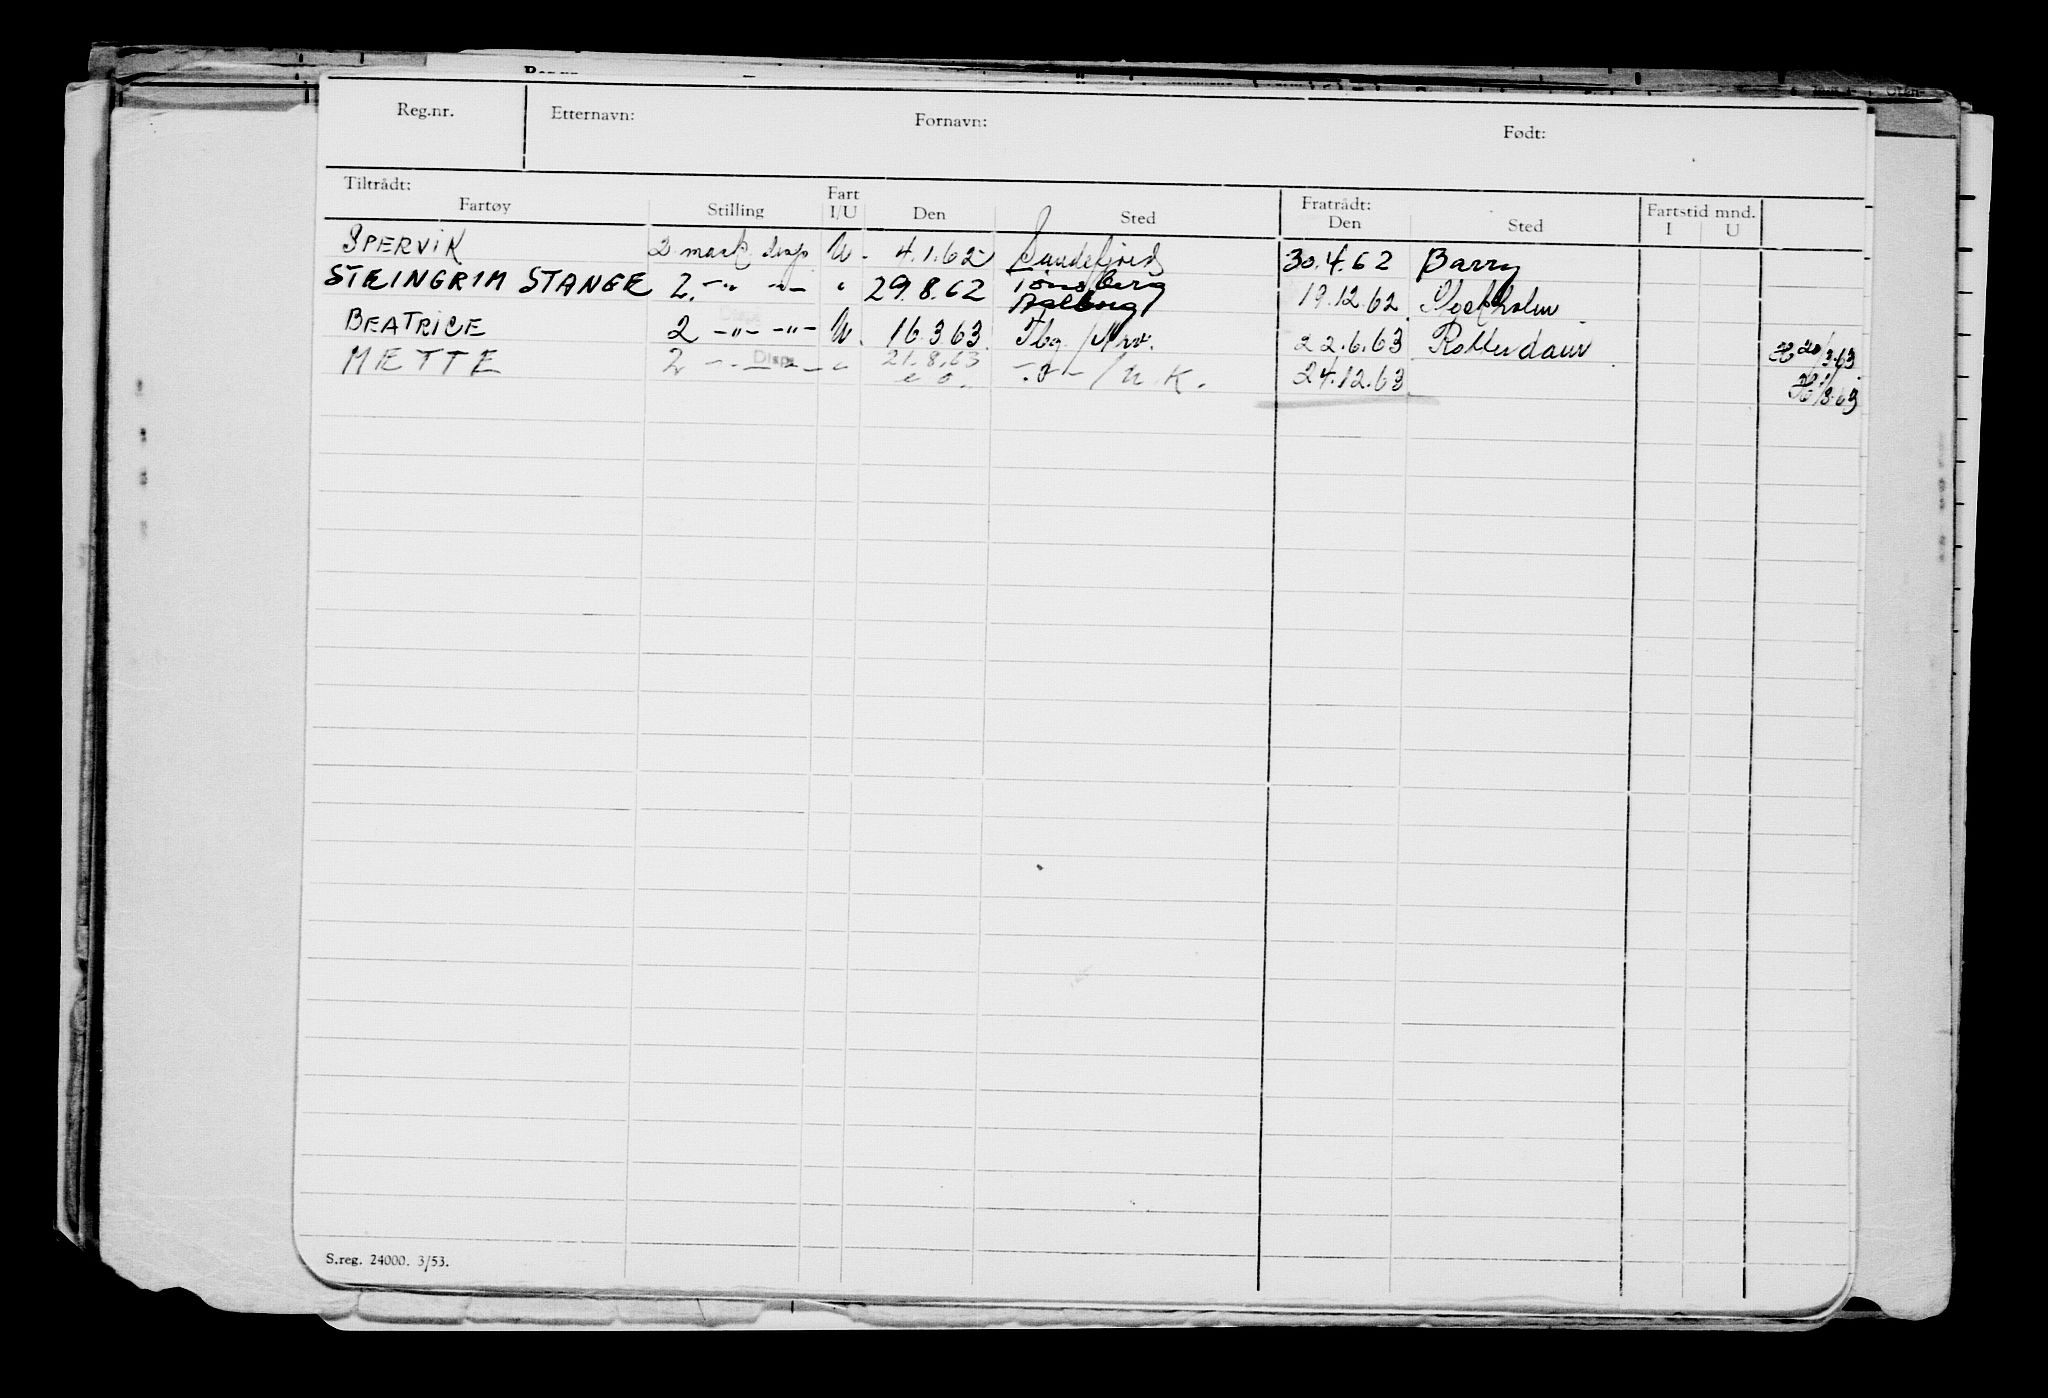 Reg.nr. Etternavn: Fornavn: Født:
Tiltrådt: Fartøy Stilling Fart I/U Den Sted Fratrådt: Den Sted Fartstid mnd. I U
SPERVIK 2 mask disp U. 4.1.62 Sandefjord 30.4.62 Barry
STEINGRIM STANGE 2. -"- -"- " 29.8.62 Tønsberg Aalborg 19.12.62 Stockholm
BEATRICE 2 -"- -"- U. 16.3.63 Tbg./Nrv. 22.6.63 Rotterdam 20/3.63
METTE 2 -"- Disp. -"- 21.8.63 -"-/U.K. 24.12.63
S.reg. 24000. 3/53.